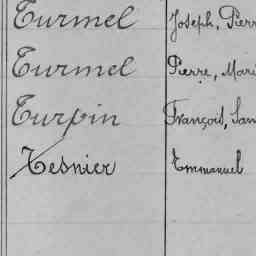 Turmel Joseph, Pierr
Turmel Pierre, Mari
Turpin François, San
Tesnier Emmanuel